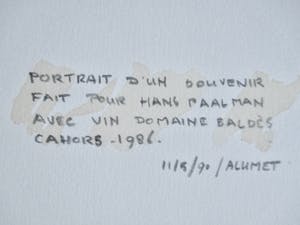 PORTRAIT D'UN SOUVENIR
FAIT POUR HANS PAALMAN
AVEC VIN DOMAINE BALDÈS
CAHORS - 1986.
11/9/90 / ALUMET